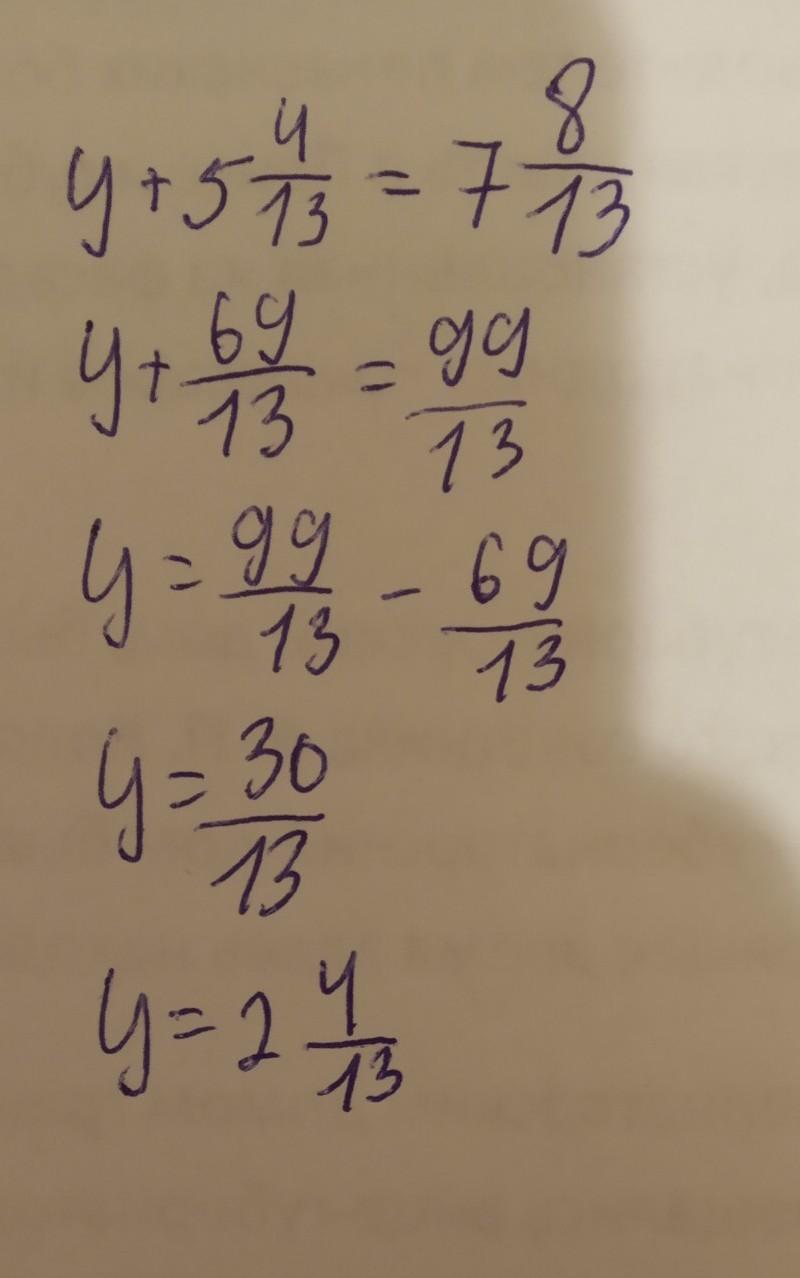 y + 5 4/13 = 7 8/13
y + 69/13 = 99/13
y = 99/13 - 69/13
y = 30/13
y = 2 4/13